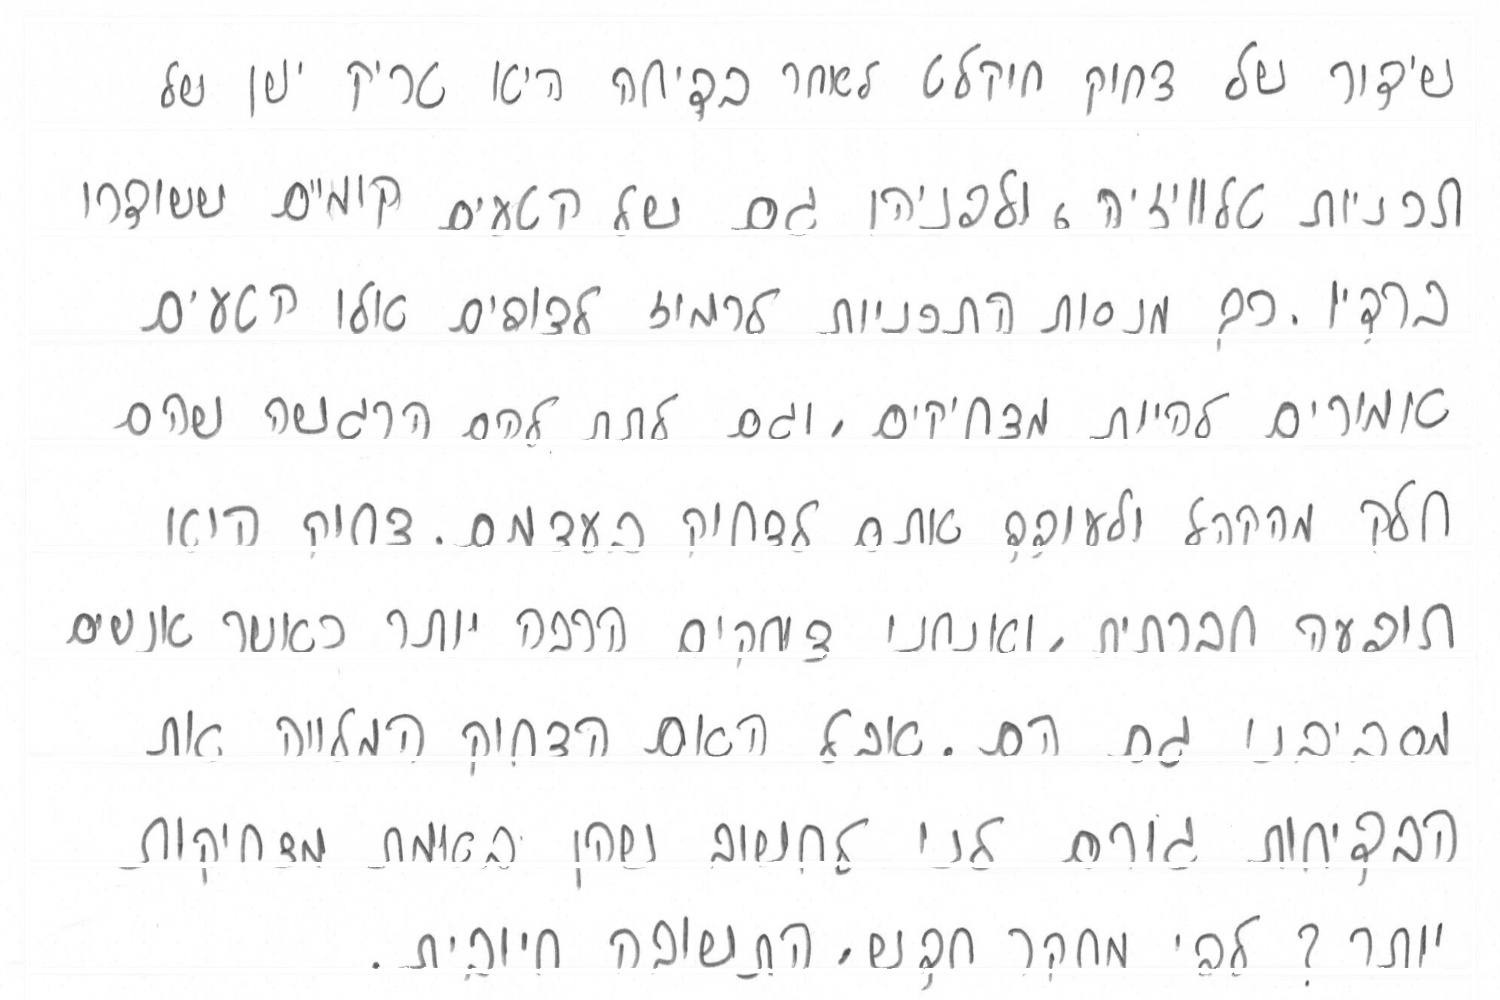 שידור של צחוק מוקלט לאחר בדיחה היא טריק ישן של
תכניות טלוויזיה, ולפניהן גם של קטעים קומיים ששודרו
ברדיו. כך מנסות התכניות לרמוז לצופים אולו קטעים
אומורים להיות מצחיקים, וגם לתת להם הרגשה שהם
חלק מהקהל ולעודד אותם לצחוק בעצמם. צחוק היא
תופעה חברתית, ואנחנו צוחקים הרבה יותר כאשר אנשים
מסביבנו גם הם. אבל האם הצחוק המלווה את
הבדיחות גורם לנו לחשוב שהן באמת מצחיקות
יותר? לפי מחקר חדש, התשובה חיובית.